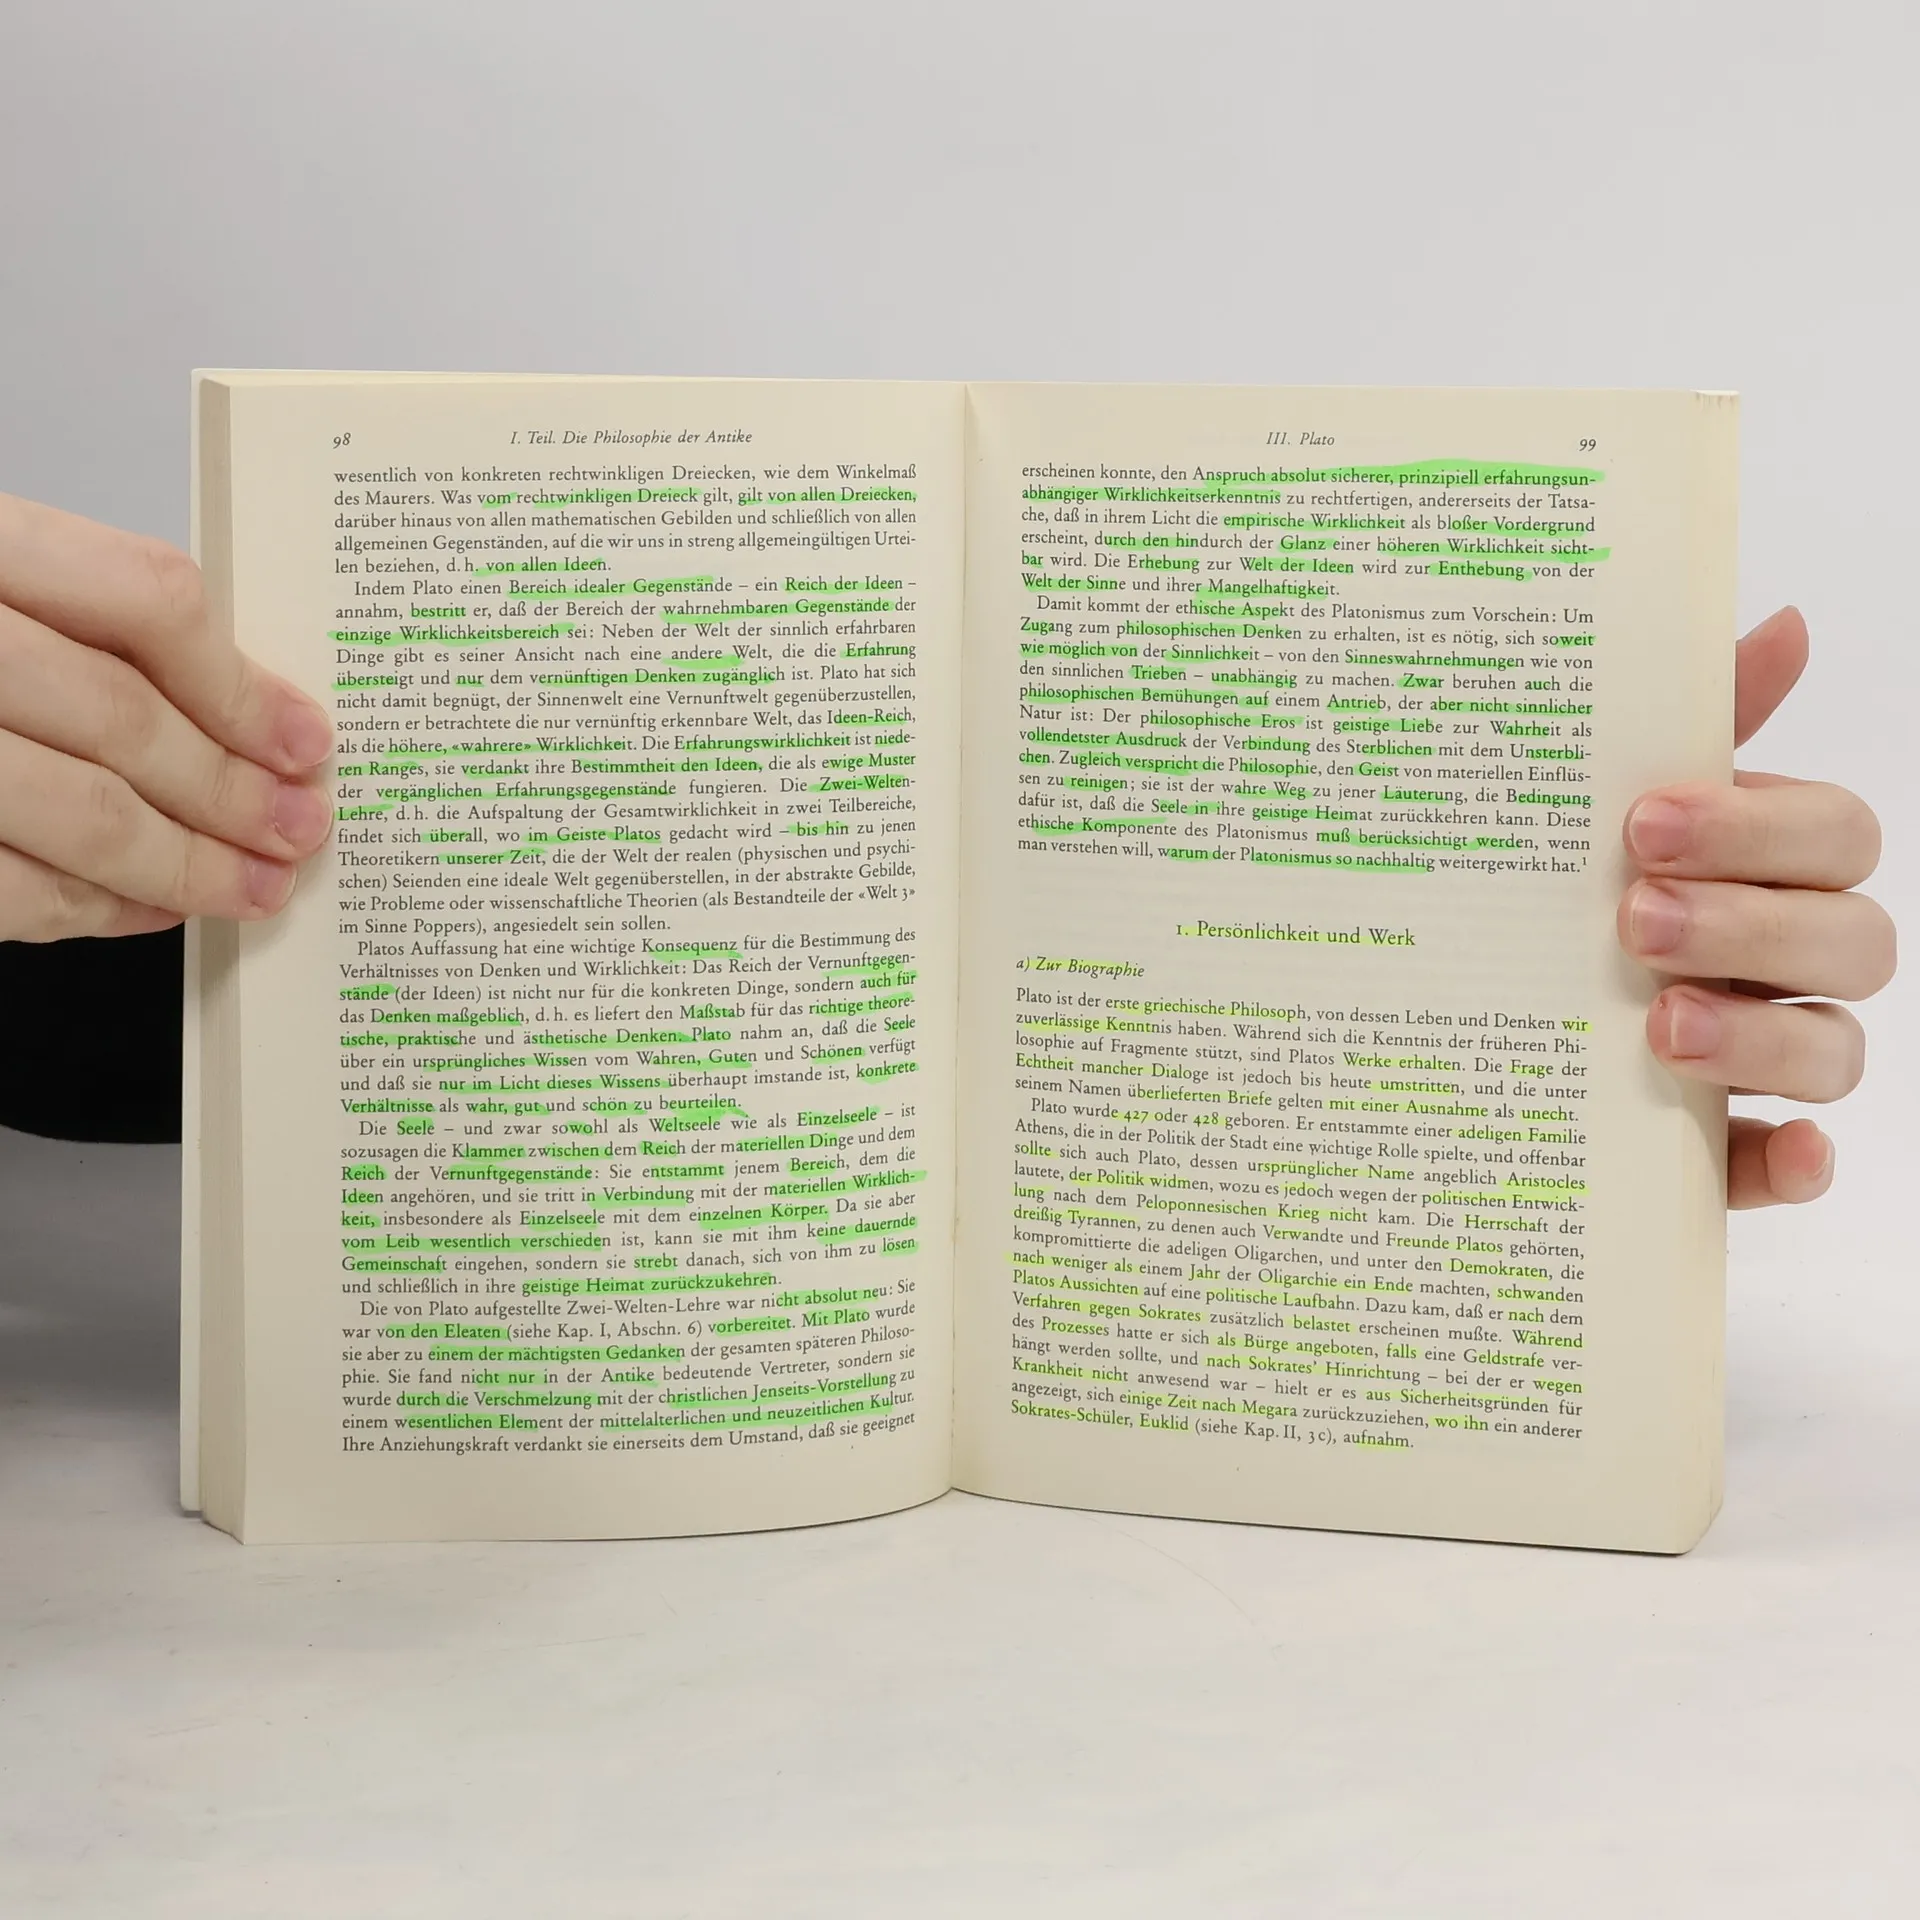 98
I. Teil. Die Philosophie der Antike
wesentlich von konkreten rechtwinkligen Dreiecken, wie dem Winkelmaß
des Maurers. Was vom rechtwinkligen Dreieck gilt, gilt von allen Dreiecken,
darüber hinaus von allen mathematischen Gebilden und schließlich von allen
allgemeinen Gegenständen, auf die wir uns in streng allgemeingültigen Urtei-
len beziehen, d. h. von allen Ideen.
Indem Plato einen Bereich idealer Gegenstände – ein Reich der Ideen –
annahm, bestritt er, daß der Bereich der wahrnehmbaren Gegenstände der
einzige Wirklichkeitsbereich sei: Neben der Welt der sinnlich erfahrbaren
Dinge gibt es seiner Ansicht nach eine andere Welt, die die Erfahrung
übersteigt und nur dem vernünftigen Denken zugänglich ist. Plato hat sich
nicht damit begnügt, der Sinnenwelt eine Vernunftwelt gegenüberzustellen,
sondern er betrachtete die nur vernünftig erkennbare Welt, das Ideen-Reich,
als die höhere, «wahrere» Wirklichkeit. Die Erfahrungswirklichkeit ist niede-
ren Ranges, sie verdankt ihre Bestimmtheit den Ideen, die als ewige Muster
der vergänglichen Erfahrungsgegenstände fungieren. Die Zwei-Welten-
Lehre, d. h. die Aufspaltung der Gesamtwirklichkeit in zwei Teilbereiche,
findet sich überall, wo im Geiste Platos gedacht wird – bis hin zu jenen
Theoretikern unserer Zeit, die der Welt der realen (physischen und psychi-
schen) Seienden eine ideale Welt gegenüberstellen, in der abstrakte Gebilde,
wie Probleme oder wissenschaftliche Theorien (als Bestandteile der «Welt 3»
im Sinne Poppers), angesiedelt sein sollen.
Platos Auffassung hat eine wichtige Konsequenz für die Bestimmung des
Verhältnisses von Denken und Wirklichkeit: Das Reich der Vernunftgegen-
stände (der Ideen) ist nicht nur für die konkreten Dinge, sondern auch für
das Denken maßgeblich, d. h. es liefert den Maßstab für das richtige theore-
tische, praktische und ästhetische Denken. Plato nahm an, daß die Seele
über ein ursprüngliches Wissen vom Wahren, Guten und Schönen verfügt
und daß sie nur im Licht dieses Wissens überhaupt imstande ist, konkrete
Verhältnisse als wahr, gut und schön zu beurteilen.
Die Seele – und zwar sowohl als Weltseele wie als Einzelseele – ist
sozusagen die Klammer zwischen dem Reich der materiellen Dinge und dem
Reich der Vernunftgegenstände: Sie entstammt jenem Bereich, dem die
Ideen angehören, und sie tritt in Verbindung mit der materiellen Wirklich-
keit, insbesondere als Einzelseele mit dem einzelnen Körper. Da sie aber
vom Leib wesentlich verschieden ist, kann sie mit ihm keine dauernde
Gemeinschaft eingehen, sondern sie strebt danach, sich von ihm zu lösen
und schließlich in ihre geistige Heimat zurückzukehren.
Die von Plato aufgestellte Zwei-Welten-Lehre war nicht absolut neu: Sie
war von den Eleaten (siehe Kap. I, Abschn. 6) vorbereitet. Mit Plato wurde
sie aber zu einem der mächtigsten Gedanken der gesamten späteren Philoso-
phie. Sie fand nicht nur in der Antike bedeutende Vertreter, sondern sie
wurde durch die Verschmelzung mit der christlichen Jenseits-Vorstellung zu
einem wesentlichen Element der mittelalterlichen und neuzeitlichen Kultur.
Ihre Anziehungskraft verdankt sie einerseits dem Umstand, daß sie geeignet
III. Plato
99
erscheinen konnte, den Anspruch absolut sicherer, prinzipiell erfahrungsun-
abhängiger Wirklichkeitserkenntnis zu rechtfertigen, andererseits der Tatsa-
che, daß in ihrem Licht die empirische Wirklichkeit als bloßer Vordergrund
erscheint, durch den hindurch der Glanz einer höheren Wirklichkeit sicht-
bar wird. Die Erhebung zur Welt der Ideen wird zur Enthebung von der
Welt der Sinne und ihrer Mangelhaftigkeit.
Damit kommt der ethische Aspekt des Platonismus zum Vorschein: Um
Zugang zum philosophischen Denken zu erhalten, ist es nötig, sich soweit
wie möglich von der Sinnlichkeit – von den Sinneswahrnehmungen wie von
den sinnlichen Trieben – unabhängig zu machen. Zwar beruhen auch die
philosophischen Bemühungen auf einem Antrieb, der aber nicht sinnlicher
Natur ist: Der philosophische Eros ist geistige Liebe zur Wahrheit als
vollendetster Ausdruck der Verbindung des Sterblichen mit dem Unsterbli-
chen. Zugleich verspricht die Philosophie, den Geist von materiellen Einflüs-
sen zu reinigen; sie ist der wahre Weg zu jener Läuterung, die Bedingung
dafür ist, daß die Seele in ihre geistige Heimat zurückkehren kann. Diese
ethische Komponente des Platonismus muß berücksichtigt werden, wenn
man verstehen will, warum der Platonismus so nachhaltig weitergewirkt hat.¹
1. Persönlichkeit und Werk
a) Zur Biographie
Plato ist der erste griechische Philosoph, von dessen Leben und Denken wir
zuverlässige Kenntnis haben. Während sich die Kenntnis der früheren Phi-
losophie auf Fragmente stützt, sind Platos Werke erhalten. Die Frage der
Echtheit mancher Dialoge ist jedoch bis heute umstritten, und die unter
seinem Namen überlieferten Briefe gelten mit einer Ausnahme als unecht.
Plato wurde 427 oder 428 geboren. Er entstammte einer adeligen Familie
Athens, die in der Politik der Stadt eine wichtige Rolle spielte, und offenbar
sollte sich auch Plato, dessen ursprünglicher Name angeblich Aristocles
lautete, der Politik widmen, wozu es jedoch wegen der politischen Entwick-
lung nach dem Peloponnesischen Krieg nicht kam. Die Herrschaft der
dreißig Tyrannen, zu denen auch Verwandte und Freunde Platos gehörten,
kompromittierte die adeligen Oligarchen, und unter den Demokraten, die
nach weniger als einem Jahr der Oligarchie ein Ende machten, schwanden
Platos Aussichten auf eine politische Laufbahn. Dazu kam, daß er nach dem
Verfahren gegen Sokrates zusätzlich belastet erscheinen mußte. Während
des Prozesses hatte er sich als Bürge angeboten, falls eine Geldstrafe ver-
hängt werden sollte, und nach Sokrates' Hinrichtung – bei der er wegen
Krankheit nicht anwesend war – hielt er es aus Sicherheitsgründen für
angezeigt, sich einige Zeit nach Megara zurückzuziehen, wo ihn ein anderer
Sokrates-Schüler, Euklid (siehe Kap. II, 3 c), aufnahm.